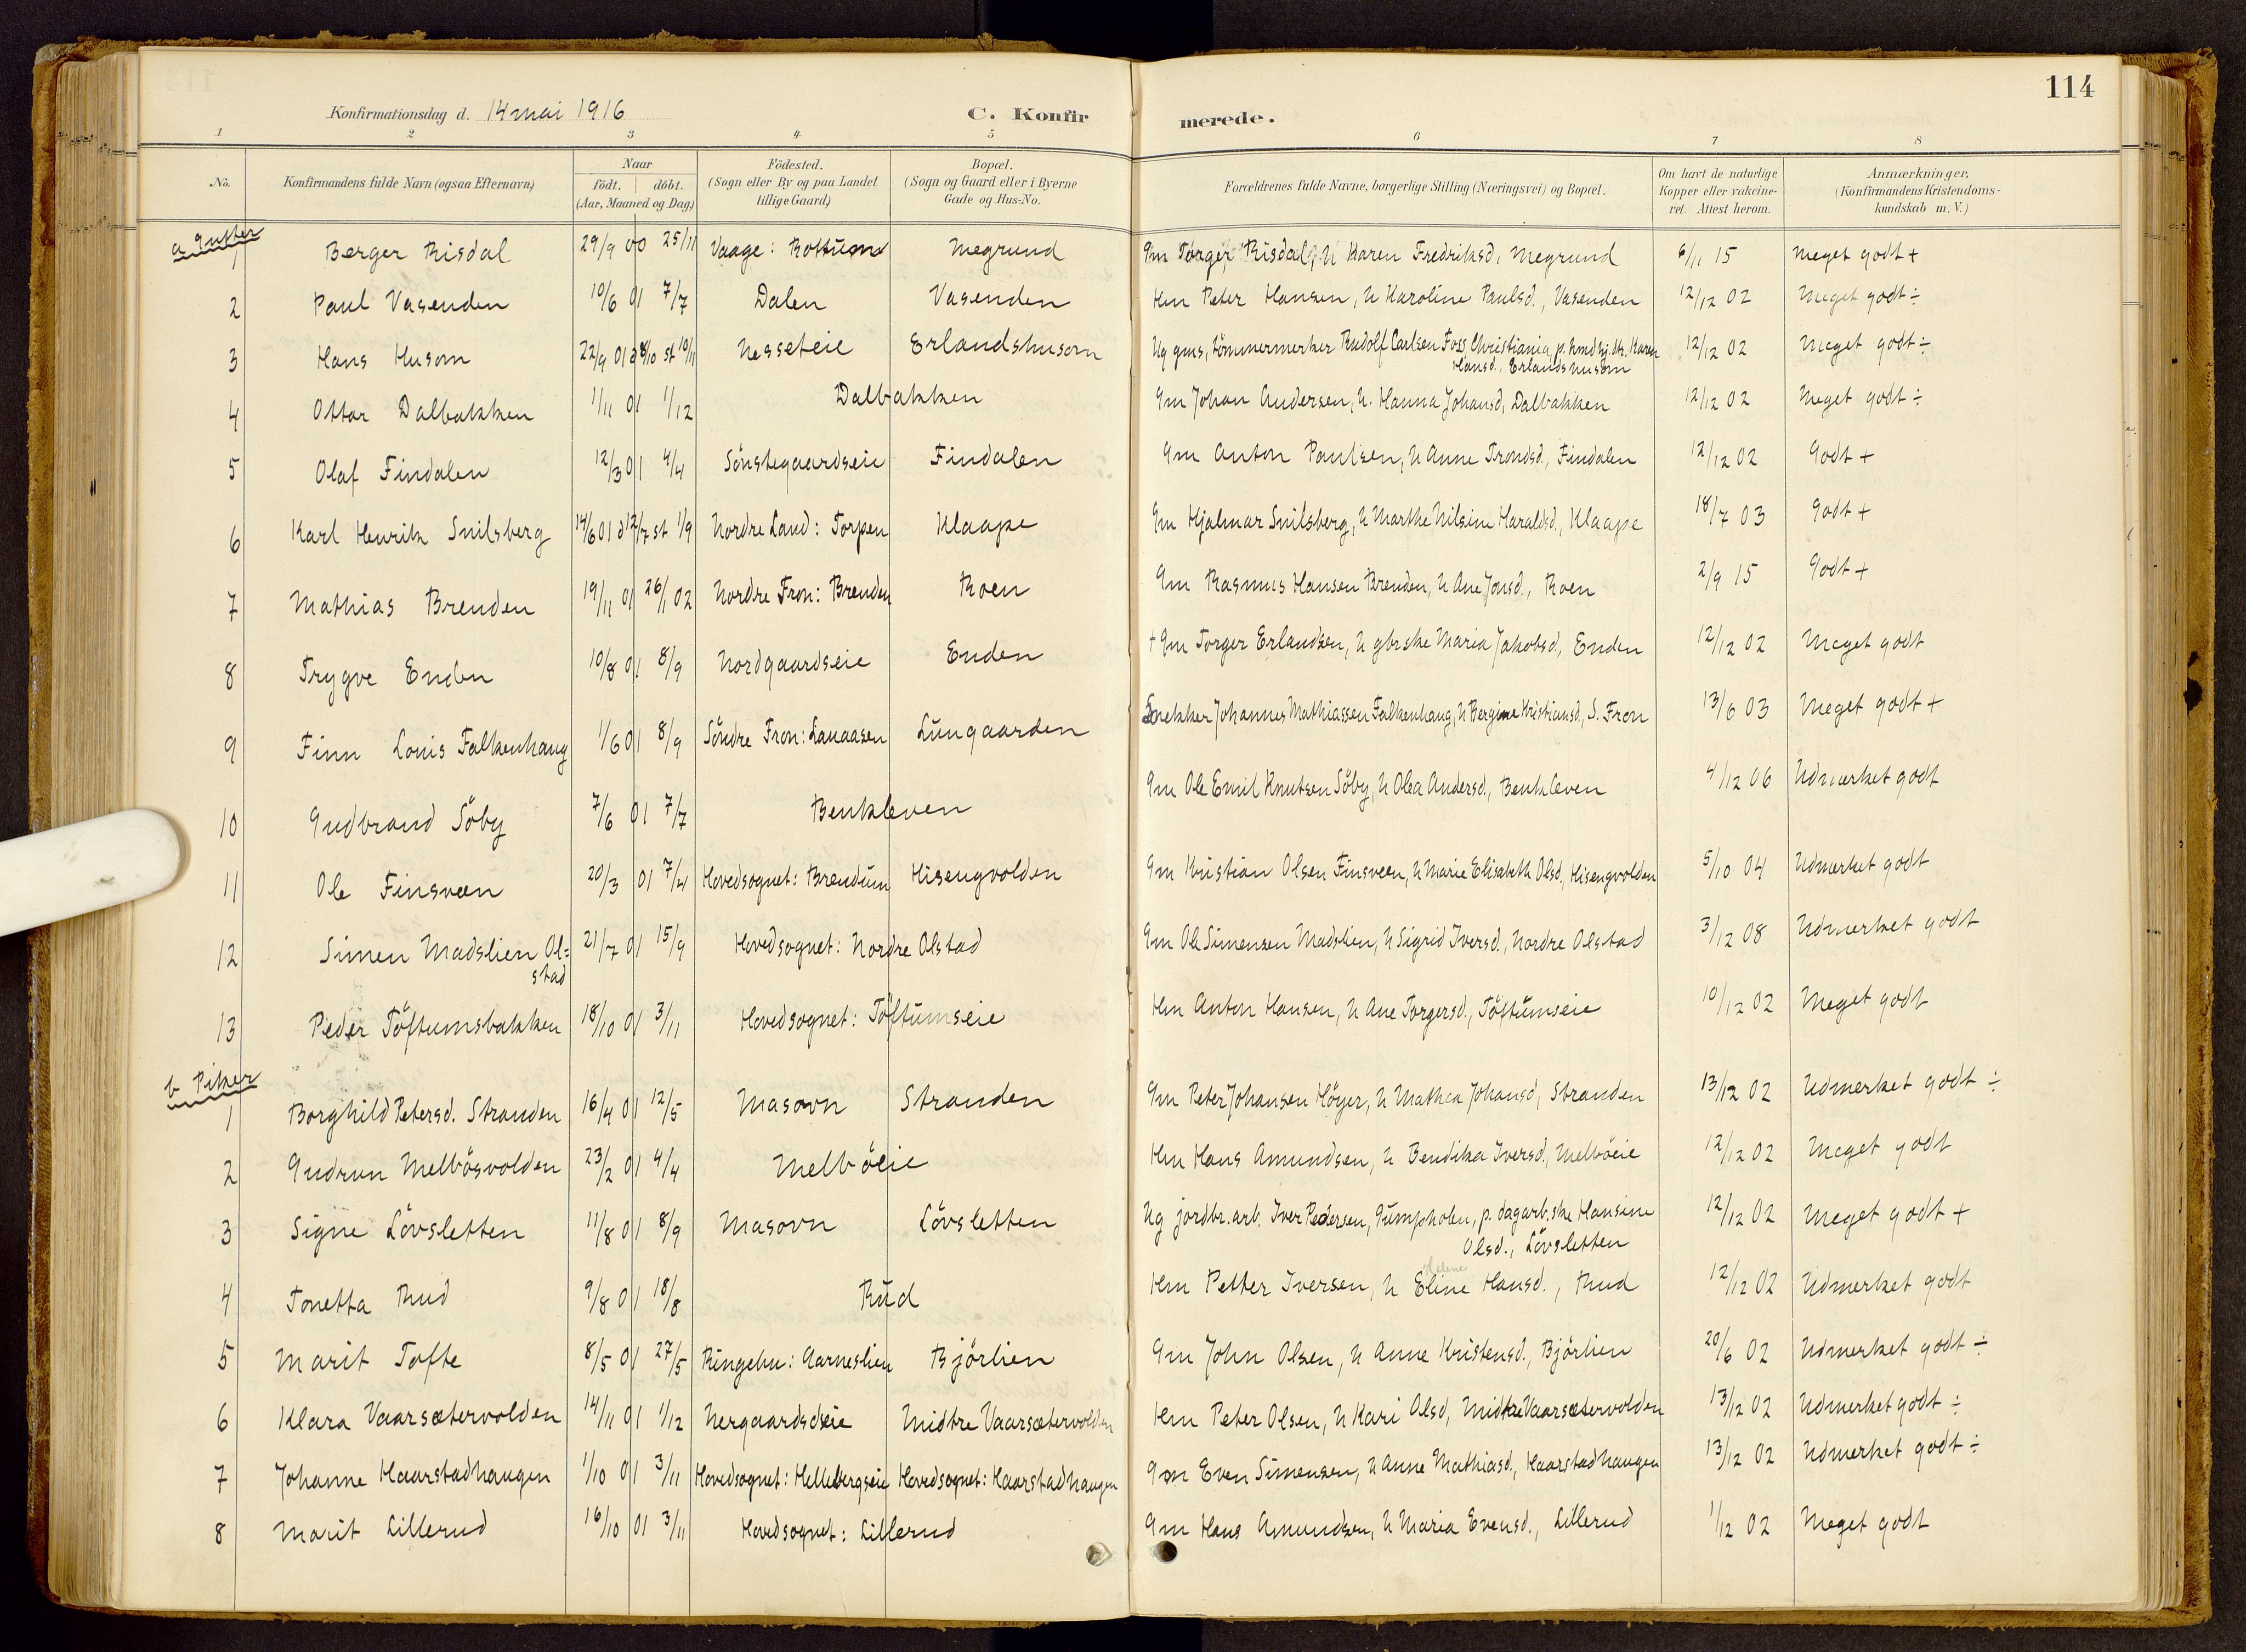 114
Konfirmationsdag d. 14 mai 1916 C. Konfirmerede.
1 2 3 4 5 6 7 8
No. Konfirmandens fulde Navn (ogsaa Efternavn) Naar födt. döbt. (Aar, Maaned og Dag) Födested. (Sogn eller By og paa Landet tillige Gaard) Bopæl. (Sogn og Gaard eller i Byerne Gade og Hus-No. Forældrenes fulde Navne, borgerlige Stilling (Næringsvei) og Bopæl. Om havt de naturlige Kopper eller vakcineret. Attest herom. Anmærkninger, (Konfirmandens Kristendomskundskab m. V.)
a Gutter
1 Berger Risdal 29/9 00 25/11 Vaage: Bottum Megrund Gm Torger Risdal, H Karen Fredriksd, Megrund 6/11 15 Meget godt +
2 Paul Vasenden 10/6 01 7/7 Dalen Vasenden Hm Peter Hansen, H Karoline Paulsd., Vasenden 12/12 02 Meget godt ÷
3 Hans Husom 22/9 01 d 8/10 st 10/11 Nesseteie Erlandshusom Ug gms, tömmermerker Rudolf Carlsen Foss, Christiania, p. hmd hj. dtr. Karen
Hansd., Erlandshusom 12/12 02 Meget godt ÷
4 Ottar Dalbakken 1/11 01 1/12 Dalbakken Gm Johan Andersen, H. Hanna Johansd, Dalbakken 12/12 02 Meget godt ÷
5 Olaf Findalen 12/3 01 4/4 Sönstegaardseie Findalen Gm Anton Paulsen, H Anne Trondsd., Findalen 12/12 02 Godt +
6 Karl Henrik Snilsberg 14/6 01 d 12/7 st 1/9 Nordre Land: Torpen Klaape Gm Hjalmar Snilsberg, H Marthe Nilsine Haraldsd., Klaape 18/7 03 Godt +
7 Mathias Brenden 19/11 01 26/1 02 Nordre Fron: Brenden Roen Gm Rasmus Hansen Brenden, H Ane Jonsd., Roen 2/9 15 Godt +
8 Trygve Enden 10/8 01 8/9 Nordgaardseie Enden + Gm Torger Erlandsen, H gbrske Maria Jakobsd., Enden 12/12 02 Meget godt
9 Finn Louis Falkenhaug 1/6 01 8/9 Söndre Fron: Lauaasen Lungaarden Snekker Johannes Mathiassen Falkenhaug, H Bergine Kristiansd, S. Fron 13/6 03 Meget godt +
10 Gudbrand Söby 7/6 01 7/7 Benkleven Gm Ole Emil Knutsen Söby, H Olea Andersd., Benkleven 4/12 06 Udmerket godt
11 Ole Finsveen 20/3 01 7/4 Hovedsognet: Brendum Hisengvolden Gm Kristian Olsen Finsveen, H Marie Elisabeth Olsd., Hisengvolden 5/10 04 Udmerket godt
12 Simen Madslien Ol=
stad 21/7 01 15/9 Hovedsognet: Nordre Olstad Gm Ole Simensen Madslien, H Sigrid Iversd., Nordre Olstad 3/12 08 Udmerket godt
13 Peder Töftumsbakken 18/10 01 3/11 Hovedsognet: Töftumseie Hm Anton Hansen, H Ane Torgersd., Töftumseie 10/12 02 Meget godt
b Piker
1 Borghild Petersd. Stranden 16/4 01 12/5 Masovn Stranden Gm Peter Johansen Höyer, H Mathea Johansd, Stranden 13/12 02 Udmerket godt ÷
2 Gudrun Melbösvolden 23/2 01 4/4 Melböeie Hm Hans Amundsen, H Bendika Iversd., Melböeie 12/12 02 Meget godt
3 Signe Lövsletten 11/8 01 8/9 Masovn Lövsletten Ug jordbr.arb. Iver Pedersen, Gumpholen, p. dagarb.ske Hansine
Olsd., Lövsletten 12/12 02 Meget godt +
4 Tonetta Rud 9/8 01 18/8 Rud Hm Petter Iversen, H Eline Hansd., Rud 12/12 02 Udmerket godt
Helene
5 Marit Tofte 8/5 01 27/5 Ringebu: Aarneslien Björlien Gm John Olsen, H Anne Kristensd., Björlien 20/6 02 Udmerket godt ÷
6 Klara Vaarsætervolden 14/11 01 1/12 Nergaardseie Midtre Vaarsætervolden Hm Peter Olsen, H Kari Olsd, Midtre Vaarsætervolden 13/12 02 Udmerket godt ÷
7 Johanne Haarstadhaugen 1/10 01 3/11 Hovedsognet: Hellebergseie Hovedsognet: Haarstadhaugen Gm Even Simensen, H Anne Mathiasd., Haarstadhaugen 13/12 02 Udmerket godt ÷
8 Marit Lillerud 16/10 01 3/11 Hovedsognet: Lillerud Gm Hans Amundsen, H Maria Evensd., Lillerud 1/12 02 Meget godt